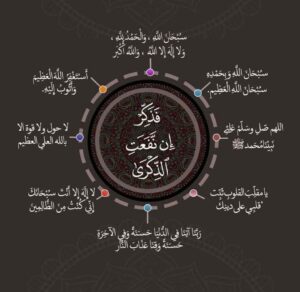 سُبْحَانَ اللَّهِ ، وَالْحَمْدُ لِلَّهِ ،
وَلَا إِلَهَ إِلَّا اللَّهُ ، وَاللَّهُ أَكْبَرُ
سُبْحَانَ اللَّهِ وَبِحَمْدِهِ
سُبْحَانَ اللَّهِ الْعَظِيمِ
اللهم صَلِ وَسَلِّمْ عَلَى
نَبِيِّنَا مُحَمَّد ﷺ
يا مقلب القلوب ثبت
قلبي على دينك
رَبَّنَا آتِنَا فِي الدُّنْيَا حَسَنَةً وَفِي الْآخِرَةِ
حَسَنَةً وَقِنَا عَذَابَ النَّارِ
لَا إِلَهَ إِلَّا أَنْتَ سُبْحَانَكَ
إِنِّي كُنْتُ مِنَ الظَّالِمِينَ
لا حول ولا قوة الا
بالله العلي العظيم
أَسْتَغْفِرُ اللَّهَ الْعَظِيمَ
وَأَتُوبُ إِلَيْهِ
فَذَكِّرْ
إِن نَّفَعَتِ
الذِّكْرَىٰ